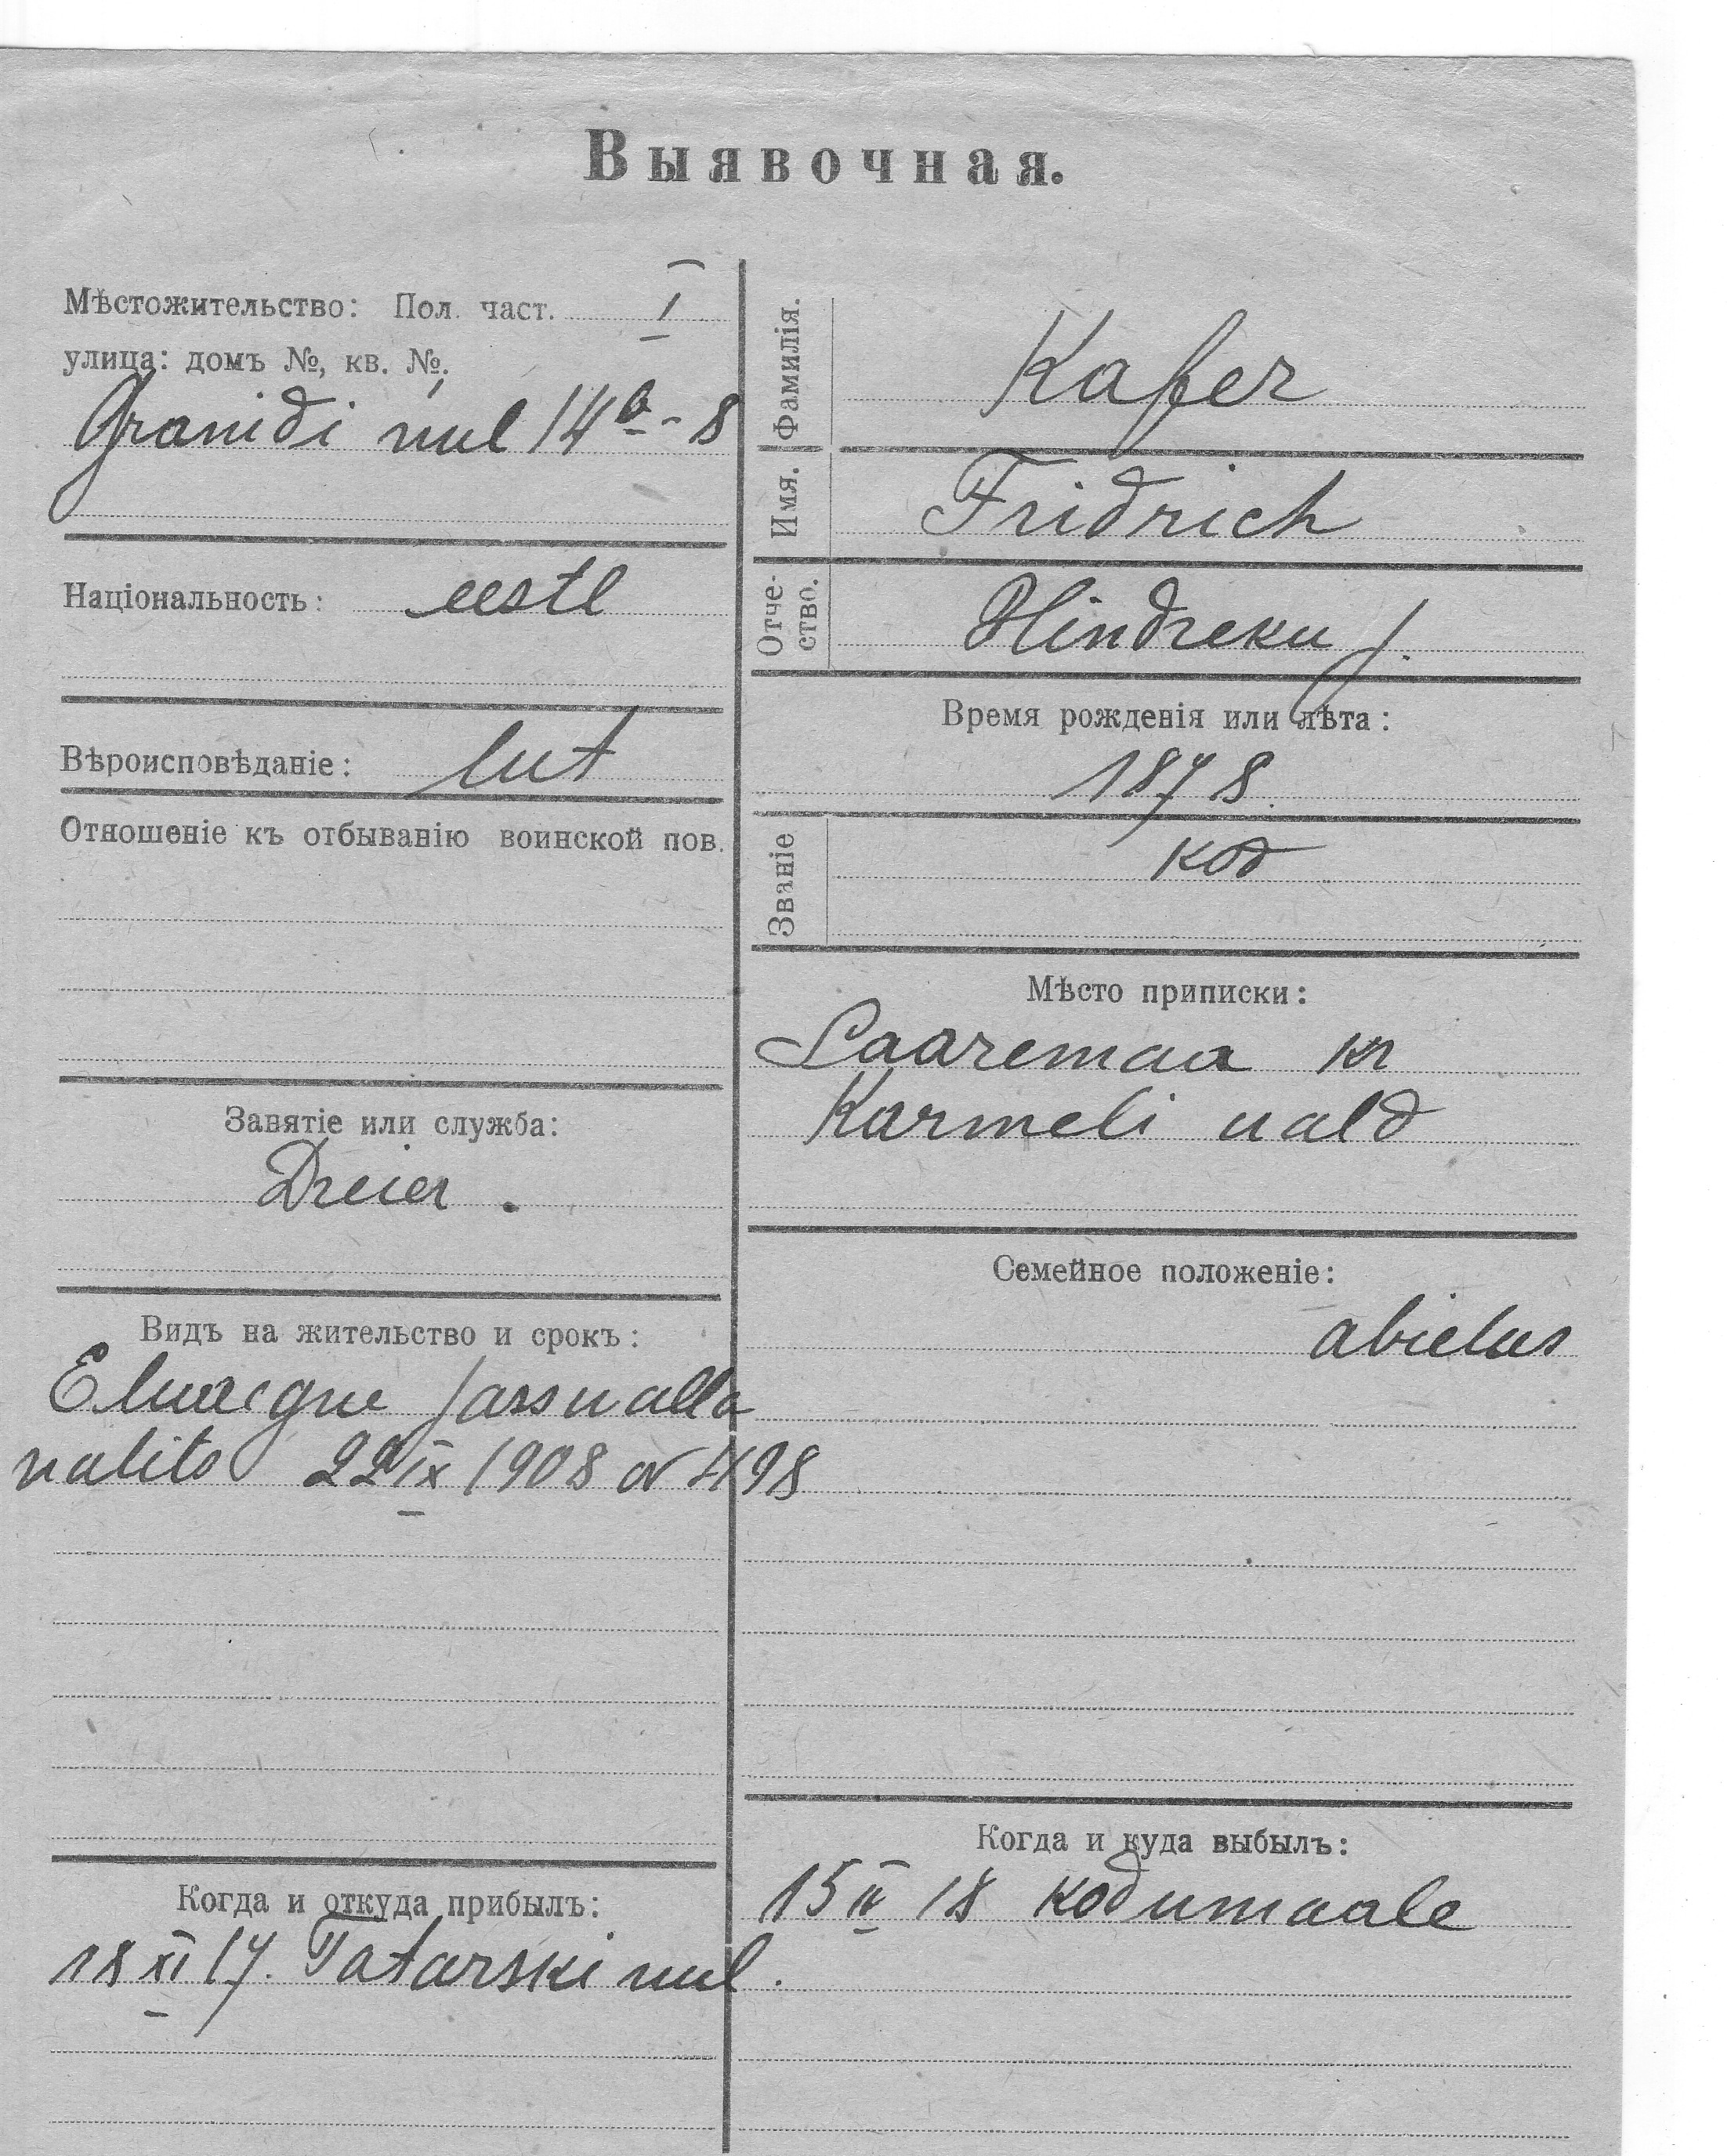 Выявочная.
Мѣстожительство: Пол. част. I
улица: домъ №, кв. №.
Granidi uul 14a - 8
Національность: eestl
Вѣроисповѣданіе: lut
Отношеніе къ отбыванію воинской пов.
Занятіе или служба:
Dreier.
Видъ на жительство и срокъ:
ualits 22 IX 1908 № 498
Когда и откуда прибылъ:
18 XI 17. Tatarski uul.
Фамилія. Kafer
Имя. Fridrich
Отче-
ство. Hindreku p.
Время рожденія или лѣта:
1878.
Званіе kod
Мѣсто приписки:
Saaremaa kr
Karmeli uald
Семейное положеніе:
abielus
Когда и куда выбылъ:
15 IV 18 kodumaale